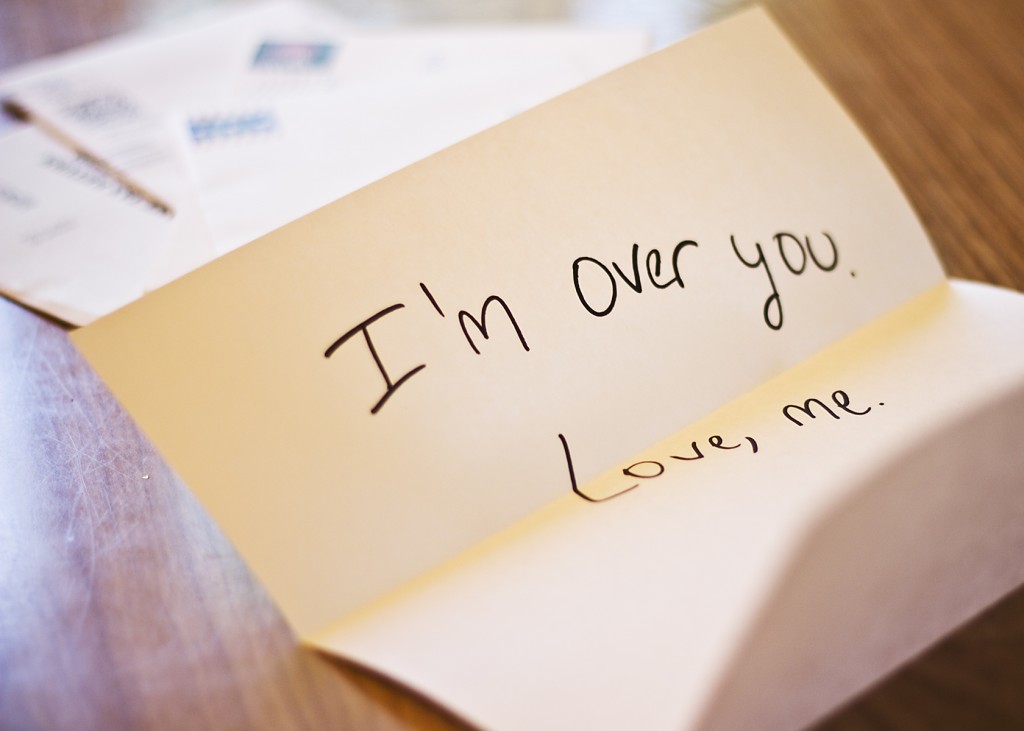 I'm over you.
Love, me.